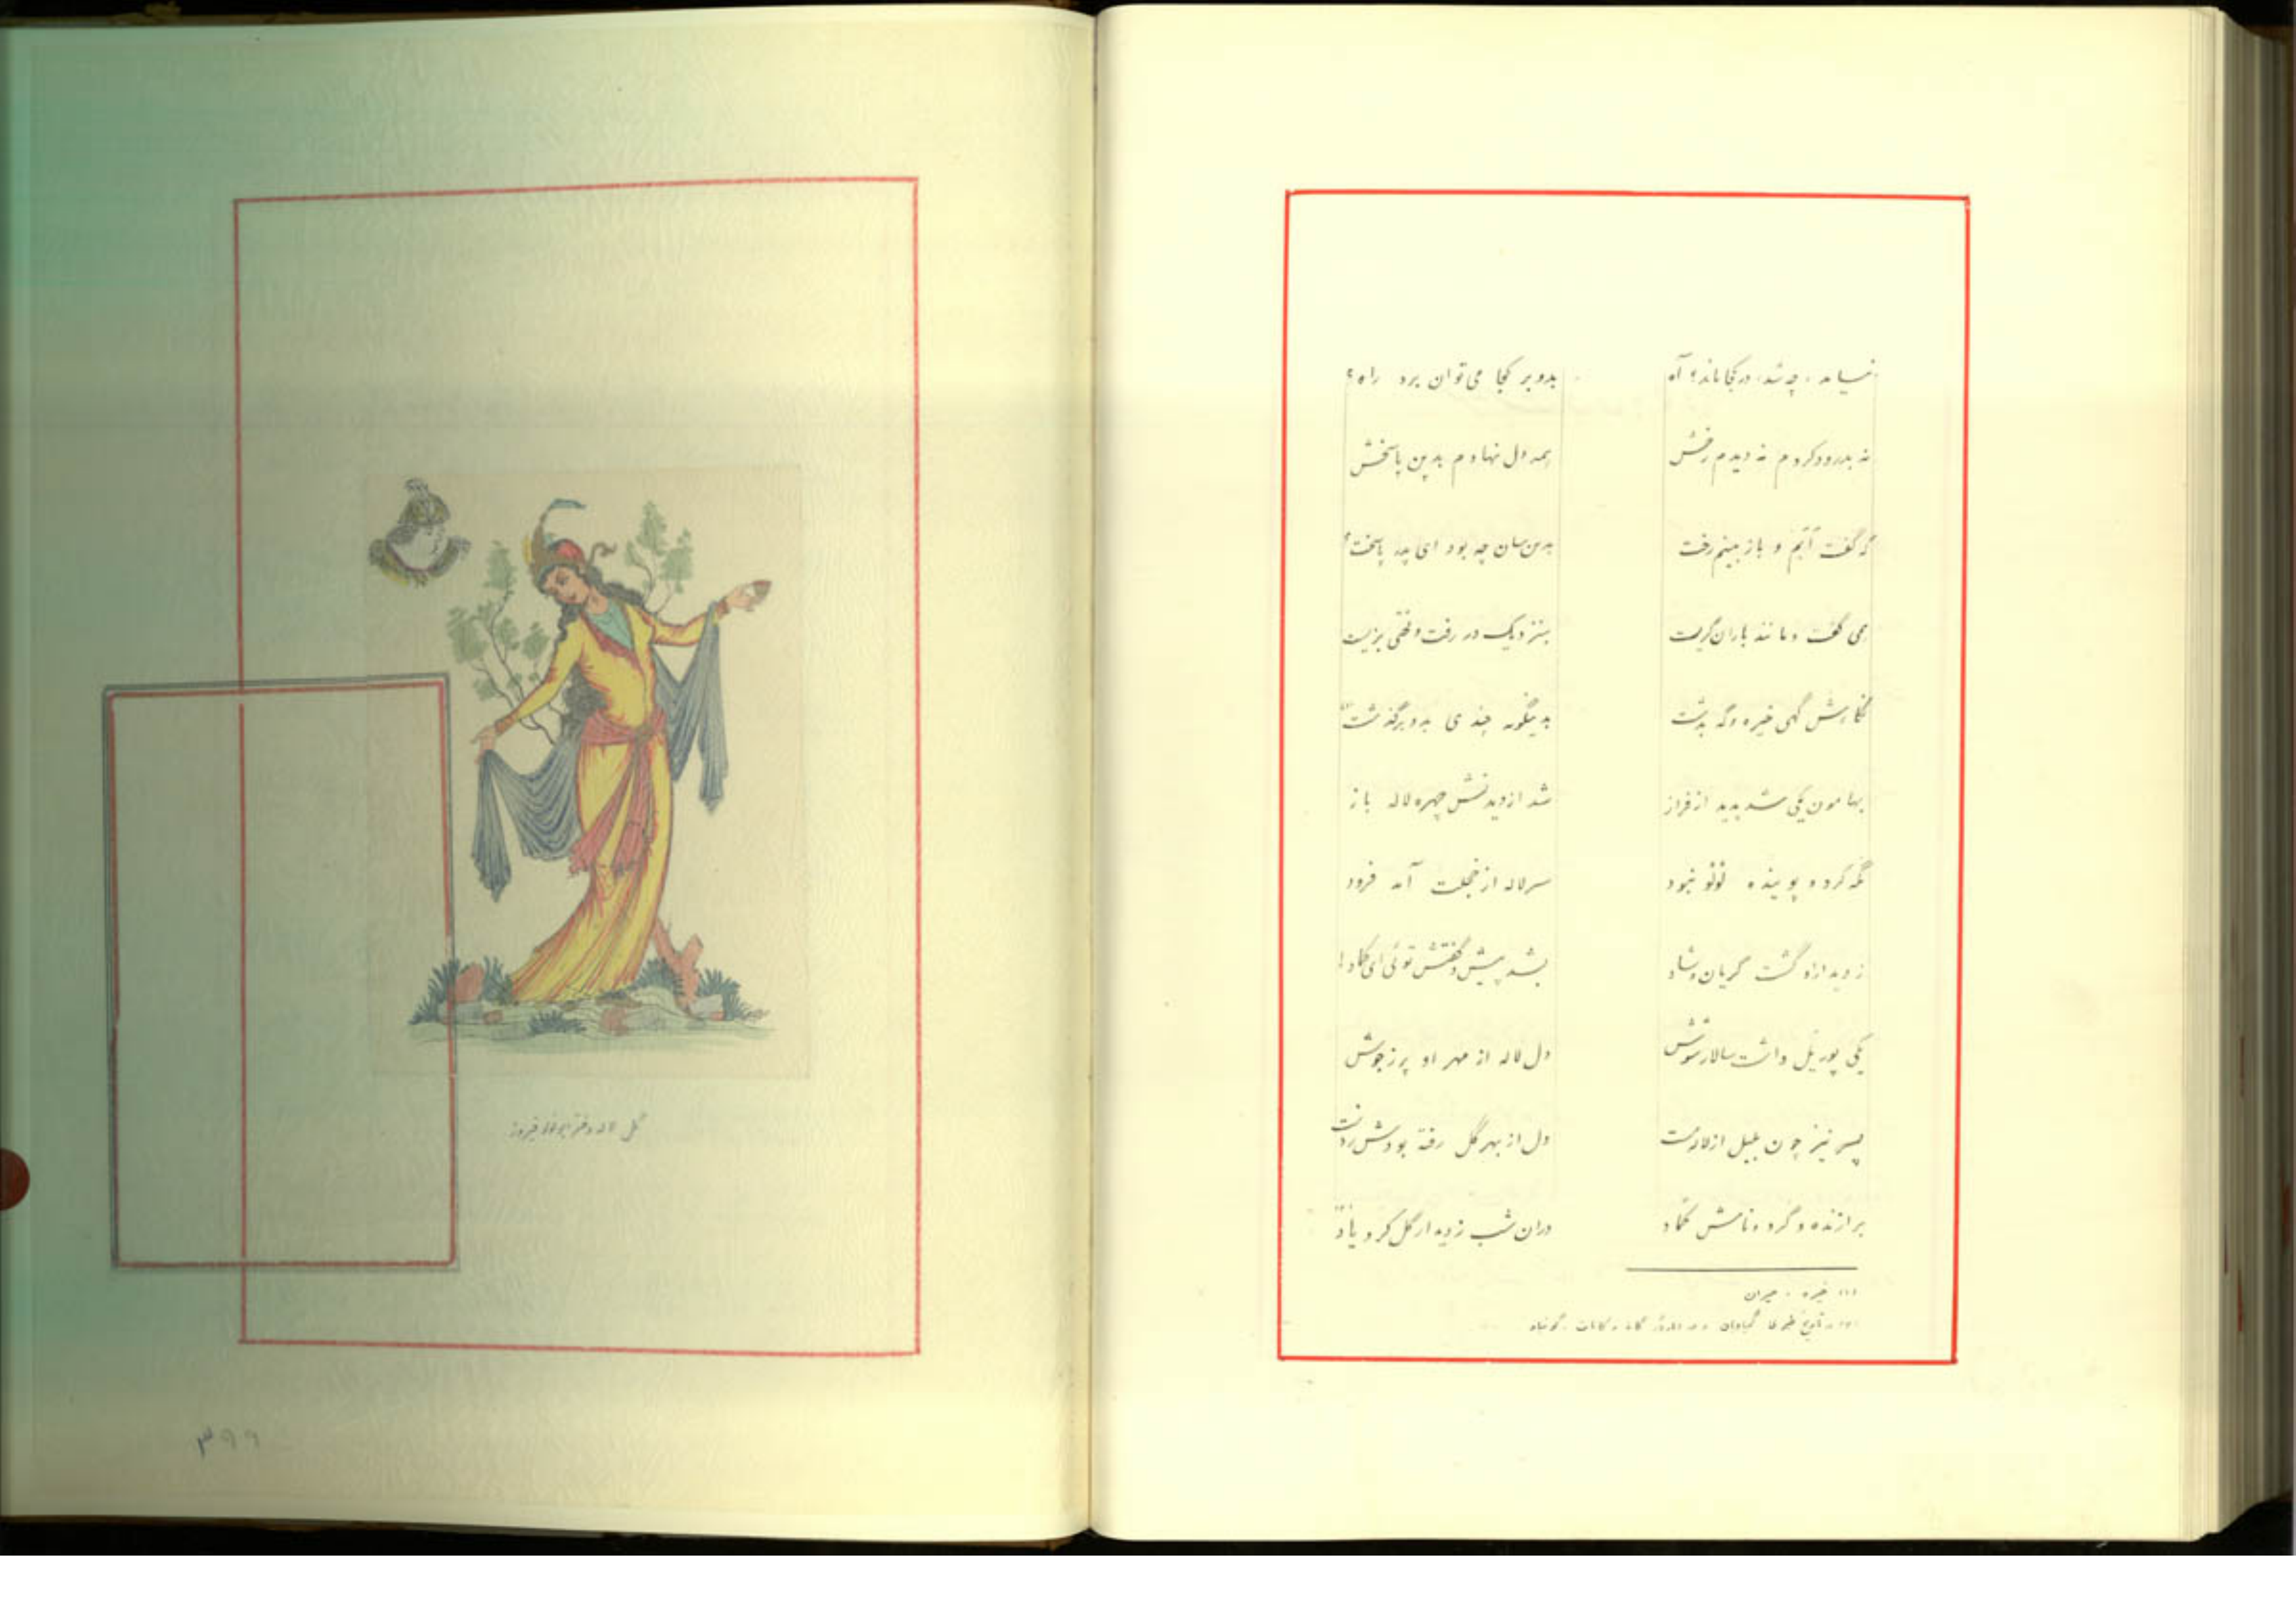 نیامد، چه شد، در کجا ماند؟ آه بدو بر کجا می‌توان برد راه؟
نه بدرود کردم نه دیدم رخش همه دل نهادم بدین پاسخش
که گفت آیم و باز بینم رخت بدین سان چه بود ای پدر پاسخت؟
همی گفت و مانند باران گریست بنزدیک در رفت و لختی بزیست
نگارش گهی خیره و گه بدشت بدینگونه چندی بدو برگذشت
بهامون یکی شد پدید از فراز شد از دیدنش چهره لاله باز
نگه کرد و پوینده نبود سر لاله از خجلت آمد فرود
ز دیدار او گشت گریان و شاد بشد پیش و گفتش توئی ای کماد!
یکی پور یل داشت سالار شوش دل لاله از مهر او پر ز جوش
پسر نیز چون بلبل از لاله مست دل از بهر گل رفته بودش ز دست
برازنده و گرد و نامش کماد در ان شب ز دیدار گل کرد یاد
(۱) خیره : حیران
گل لاله دختر فیروز
۳۹۹